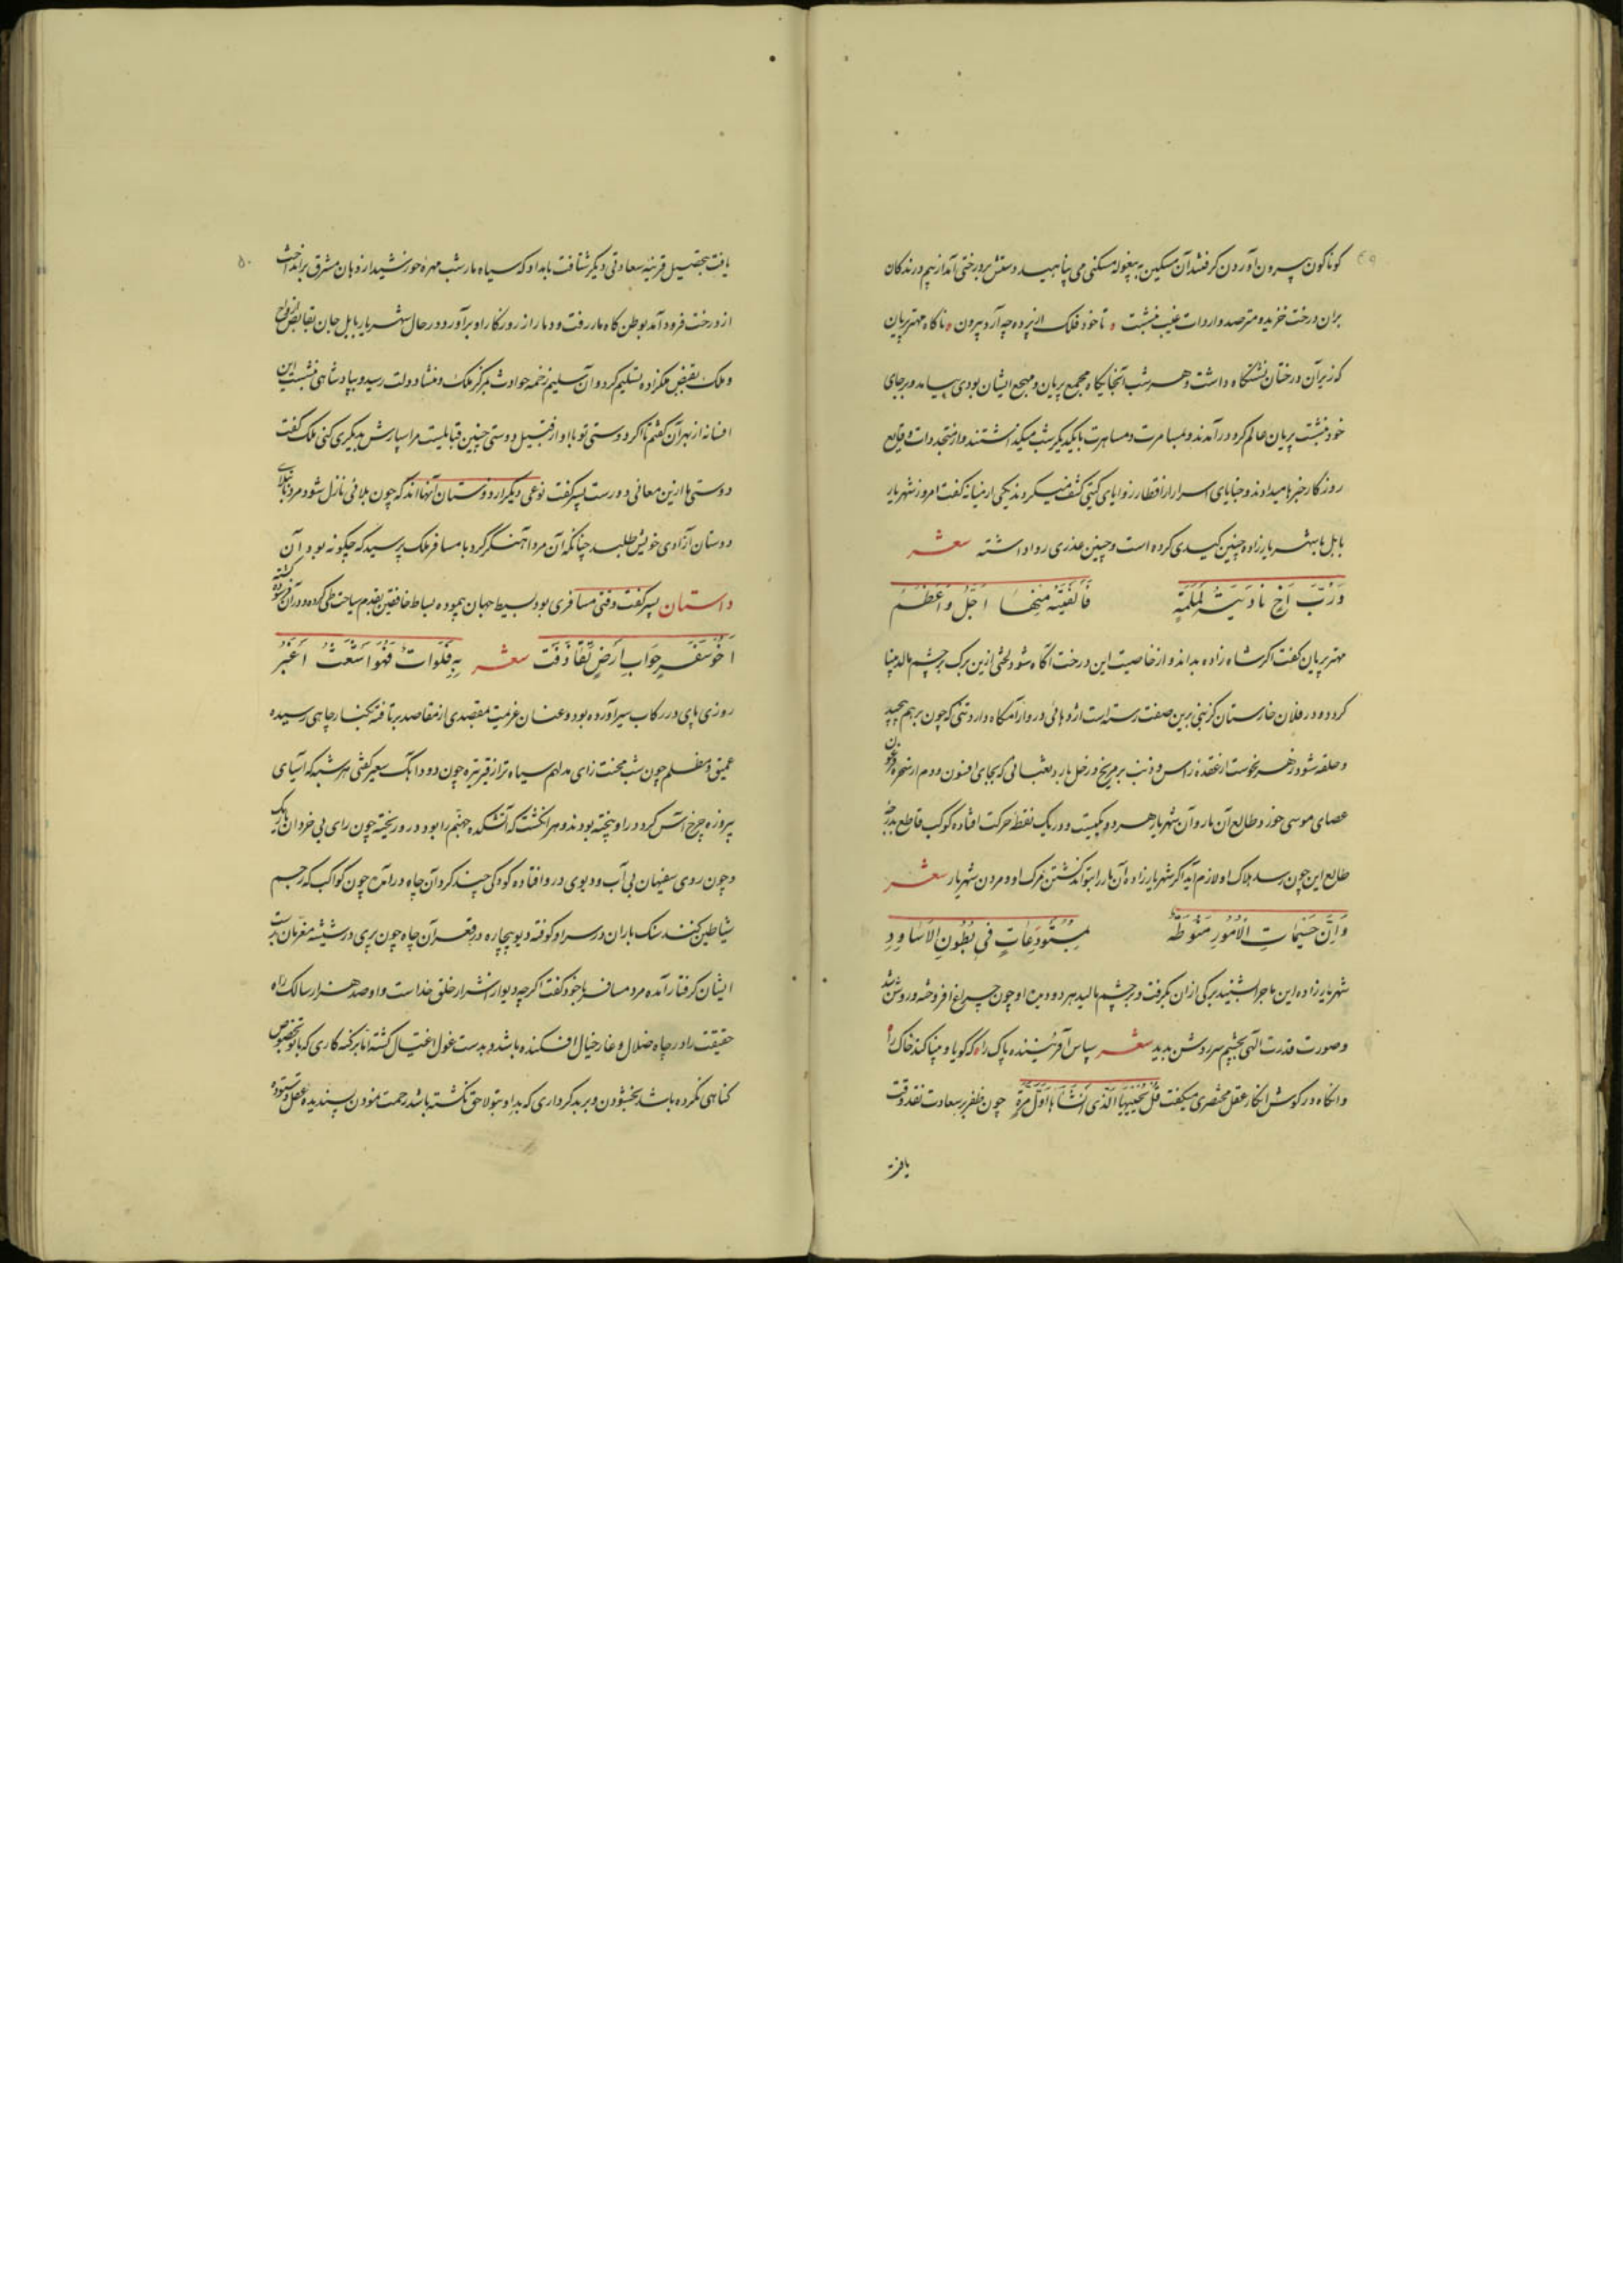 کوناکون بیرون آوردن کرفتند آن مسکین به بیغوله مسکنی می پناهید دستش بر درختی آمد از بیم درندکان
بران درخت خزید و مترصد واردات غیب بنشست ه تا خود فلک از پرده چه آرد بیرون ه ناکاه مهتر پریان
که زیر آن درختان نشستکاه داشت و هر شب آنجایکاه مجمع پریان و مهیع ایشان بودی بیامد و بر جای
خود بنشست پریان عالم کرد درآمدند و بمسامرت و مساهرت با یکدیکر شب میکذاشتند و از متجددات وقایع
روزکار خبرها میدادند و خبایای اسرار از اقطار زوایای کیتی کشف میکردند یکی از میانه کفت امروز شهریار
بابل با شهریارزاده چنین کیدی کرده است و چنین عذری روا داشته شعر
وَرُبَّ اَخٍ نادَیتُهُ لِمُلِمَّةٍ فَاَلفَیتُهُ مِنها اَجَلُّ وَ اَعظَمُ
مهتر پریان کفت اکر شاه زاده بداند و از خاصیت این درخت آکاه شود لختی ازین برک بر چشم مالد بینا
کردد و در فلان خارستان کزبنی برین صفت رسته است اژدهائی درو آرامکاه دارد تنی که چون بر هم پیچید
و حلقه شود زهر نحوست از عقده راس و ذنب بر مریخ و زحل بارد ثعبانی که بجای افسون و دم از سحره فرعون
عصای موسی خورد طالع آن مار و آن شهریار هر دو یکیست و در یک نقطه حرکت افتاده کوکب قاطع بدرجه
طالع این چون رسد هلاک او لازم آید اکر شهریارزاده آن مار را بتواند کشتن مرک او و مردن شهریار شعر
وَ اِنَّ جَسیماتِ الاُمُورِ مَنُوطَةٌ بِمُستَودَعاتٍ فی بُطُونِ الاَساوِدِ
شهریارزاده این ماجرا بشنید برکی از آن بکرفت و بر چشم مالید هر دو دیده او چون چراغ افروخته و روشن شد
و صورت قدرت الهی بچشم سر روشن بدید شعر سپاس آفریننده پاک را ه که کویا و بینا کند خاک را ه
و آنکاه در کوش انکار عقل مختصری میکفت قُل یُحییها الَّذی اَنشَاَها اَوَّلَ مَرَّةٍ چون ظفر بر سعادت نقد وقت
یافت
یافت بتحصیل قرینه سعادتی دیکر شتافت بامداد که سیاه مار شب مهره خورشید از دهان مشرق برانداخت
از درخت فرود آمد بوطن کاه مار رفت و دمار از روزکار او برآورد در حال شهریار بابل جان بقابض ارواح
و ملک بقبض ملکزاده تسلیم کرد و آن سلیم زخمه حوادث بمرکز ملک و منشاء دولت رسید و بپادشاهی بنشست این
افسانه از بهر آن کفتم تا اکر دوستی تو با او از قبیل دوستی چنین قبایلیست مرا سپارش بدیکری کنی ملک کفت
دوستی ما ازین معانی دورست پسر کفت نوعی دیکر از دوستان آنها اند که چون بلائی نازل شود مرد ببلای
دوستان آزادی خویش طلبد چنانکه آن مرد آهنکر کرد با مسافر ملک پرسید که چکونه بود آن
داستان پسر کفت وقتی مسافری بود بسیط جهان پیموده بساط خافقین بقدم سیاحت طی کرده و در آن فرسوده کشته
اَخُو سَفَرٍ جَوّابُ اَرضٍ تَقاذَفَت شعر بِهِ فَلَواتٌ فَهُوَ اَشعَثُ اَغبَرُ
روزی پای در رکاب سیر آورده بود و عنان عزیمت مقصدی از مقاصد بر تافته بکنار چاهی رسیده
عمیق و مظلم چون شب محنت زای مدلهم سیاه تر از قیر تیره چون دود آهنک سعیر کفتی هر شبه که آسیای
پیروزه چرخ آس کرد در او بیخته بودند و هر انکشت که آتشکده جهنم را بود درو ریخته چون رای بی خردان تاریک
و چون روی سفیهان بی آب و دیوی درو افتاده کودکی چند کرد آن چاه درآمده چون کواکب که رجم
شیاطین کنند سنک باران در سر او کرفته دیو بیچاره در قعر آن چاه چون پری در شیشه معزمان بدست
ایشان کرفتار آمده مرد مسافر با خود کفت اکرچه دیو از اشرار خلق خداست و او صد هزار سالک راه
حقیقت را در چاه ضلال و غار خیال افکنده باشد و بدست غول اغتیال کشته اما بر کنه کاری که با تو بخصوص
کناهی نکرده باشد بخشودن و بر بدکرداری که بد او بتو لاحق نکشته باشد رحمت نمودن پسندیده عقل و ستوده